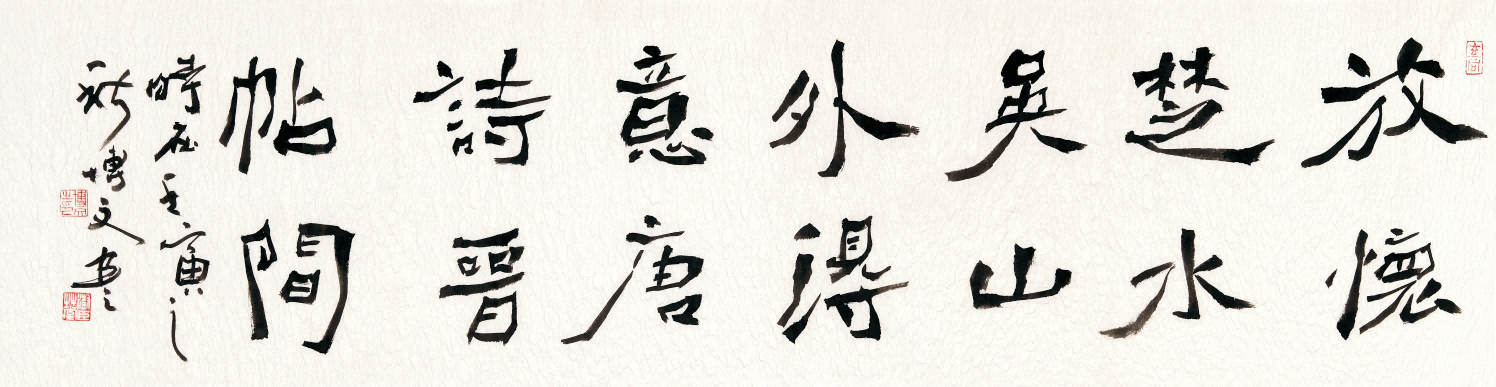 放懷
楚水
吳山
外得
意唐
詩晉
帖間
時在壬寅之
秋博文書